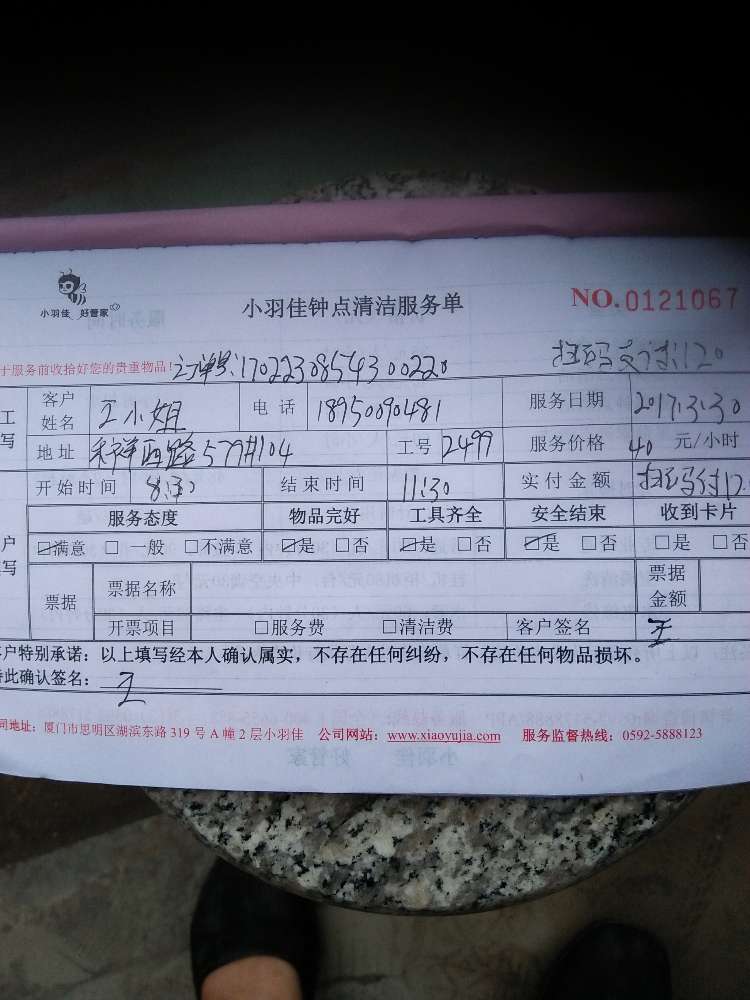 小羽佳 好管家
小羽佳钟点清洁服务单
NO.0121067
于服务前收拾好您的贵重物品!
订单号:1702230854300220
扫码支付:120
工 客户姓名 王小姐 电话 18950090481 服务日期 2017.3.30
写 地址 祥西路579#104 工号 2499 服务价格 40 元/小时
开始时间 8:30 结束时间 11:30 实付金额 扫码付12
服务态度 物品完好 工具齐全 安全结束 收到卡片
户 ☑满意 □一般 □不满意 ☑是 □否 ☑是 □否 ☑是 □否 □是 □否
写 票据 票据名称 票据金额
开票项目 □服务费 □清洁费 客户签名 王
客户特别承诺：以上填写经本人确认属实，不存在任何纠纷，不存在任何物品损坏。
此确认签名： 王
司地址：厦门市思明区湖滨东路 319 号 A 幢 2 层小羽佳 公司网站：www.xiaoyujia.com 服务监督热线：0592-5888123